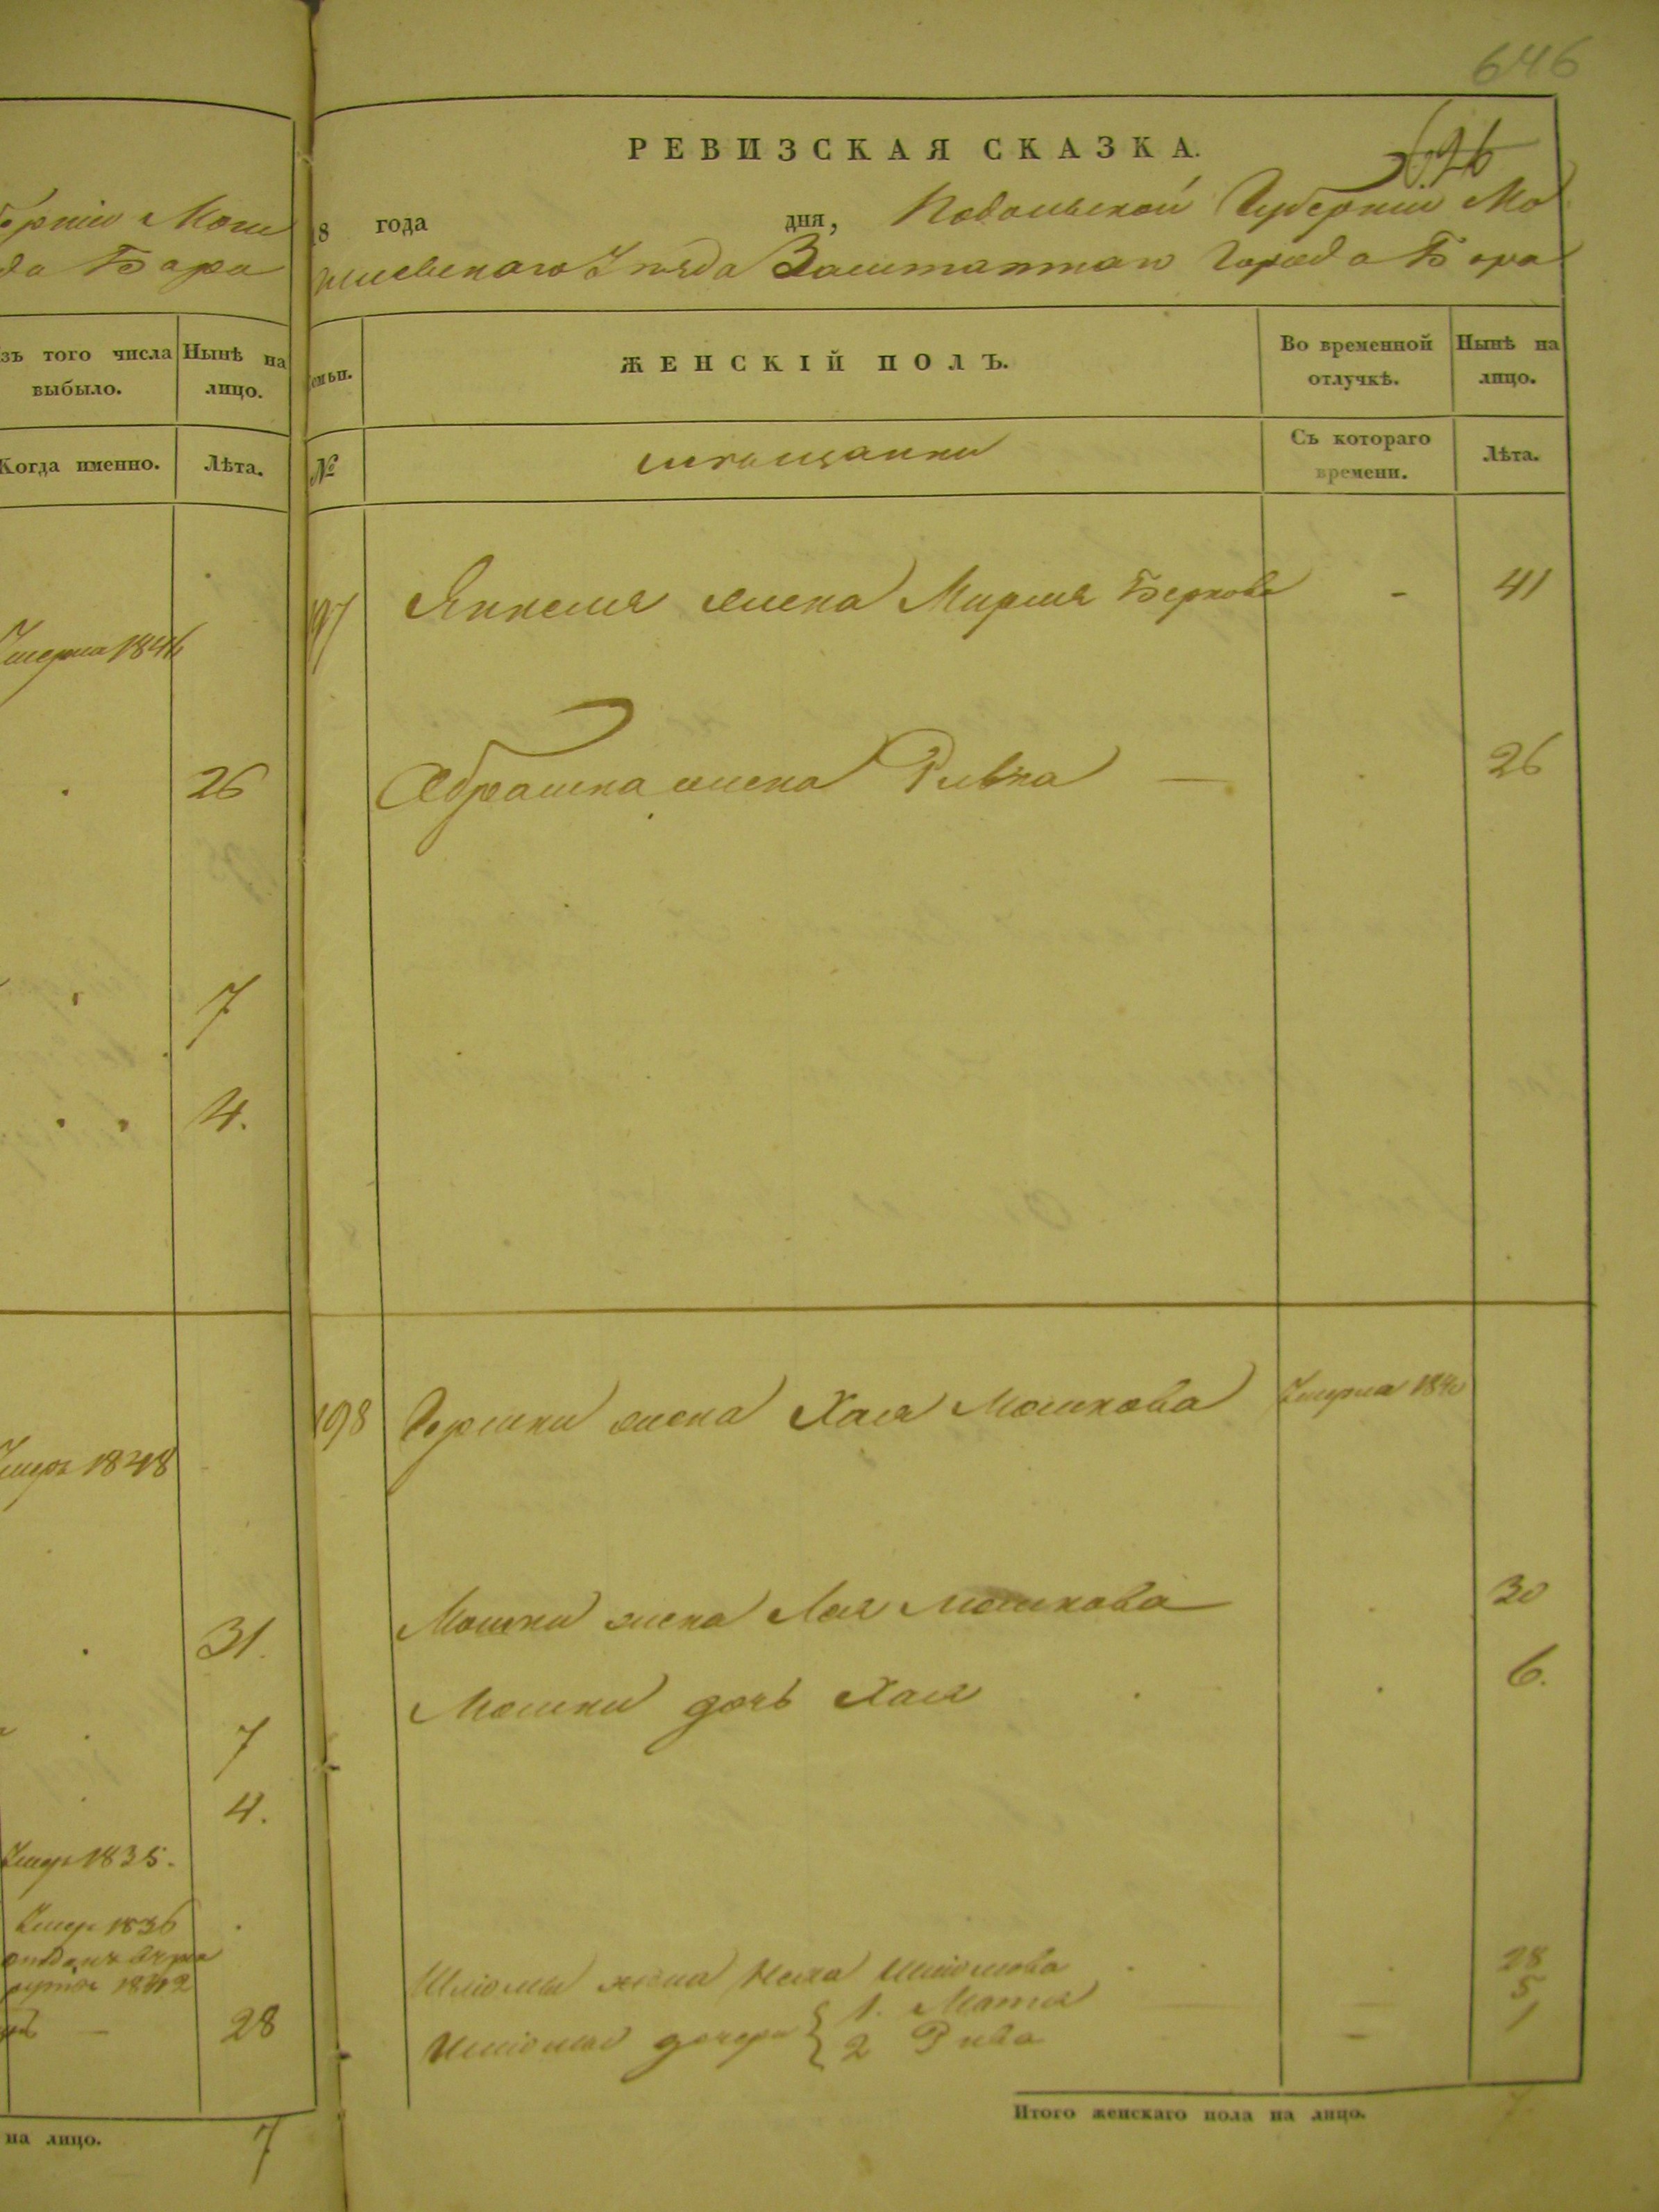 646
РЕВИЗСКАЯ СКАЗКА.
646
18 года дня, Подольской Губернiи Мо
гилевскаго Уѣзда Заштатнаго Города Бара
женскiй полъ.
Во временной отлучкѣ.
Нынѣ на лицо.
№
мѣщанки
Съ котораго времени.
Лѣта.
197 Янкеля жена Мирля Беркова - 41
Абрашка жена Ривка — 26
198 Гершки жена Хая Мошкова Умерла 1840
Мошки жена Лея Мошкова 30
Мошки дочь Хая 6.
Шліомы жена Неха Шліомова 28
Шліомы дочери { 1. Матя 5
2 Рива — 1
Итого женскаго пола на лицо.
ерніи Моги
да Бара
зъ того числа выбыло.
Нынѣ на лицо.
Когда именно.
Лѣта.
26
7
4.
Умеръ 1848
31.
7
4.
Умеръ 1835.
Умеръ 1836
28
на лицо.
7